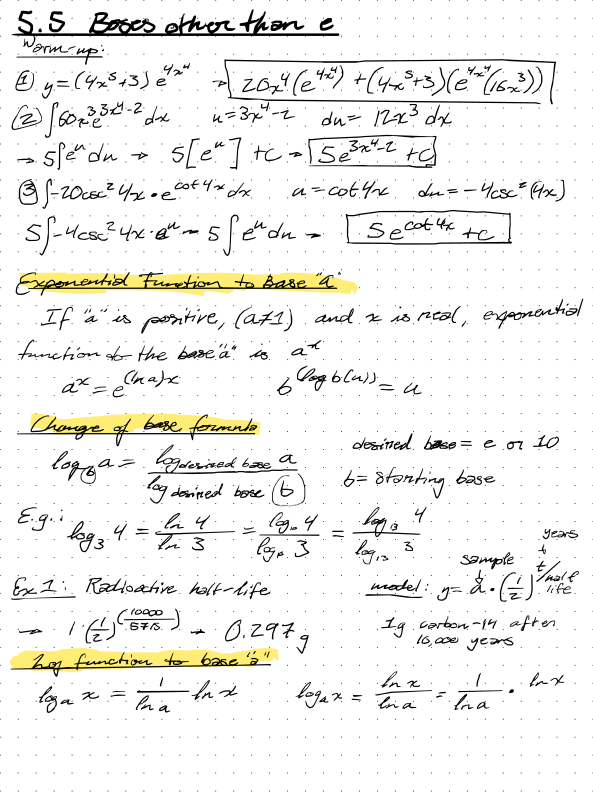 5.5 Bases other than e
Warm-up:
① y=(4x⁵+3)e^(4x⁴) → 20x⁴(e^(4x⁴))+(4x⁵+3)(e^(4x⁴)(16x³))
② ∫60x³e^(3x⁴-2)dx u=3x⁴-2 du=12x³dx
→ 5∫eᵘdu → 5[eᵘ]+c → 5e^(3x⁴-2)+c
③ ∫-20csc²4x·e^(cot4x)dx u=cot4x du=-4csc²(4x)
5∫-4csc²4x·eᵘ → 5∫eᵘdu → 5e^(cot4x)+c
Exponential Function to Base "a"
If "a" is positive, (a≠1) and x is real, exponential
function to the base "a" is aˣ
aˣ=e^((ln a)x) b^(log b(u))=u
Change of base formula
log_b a = log desired base a / log desired base b
desired base = e or 10
b= starting base
E.g.: log₃ 4 = ln 4 / ln 3 = log₁₀ 4 / log₁₀ 3 = log₁₃ 4 / log₁₃ 3
Ex 1: Radioactive half-life
years
sample
model: y= a·(1/2)^(t/half life)
→ 1·(1/2)^(10000/5715) → 0.297g
1g carbon-14 after
10,000 years
Log function to base "a"
logₐ x = 1/ln a ln x logₐ x = ln x / ln a = 1/ln a · ln x